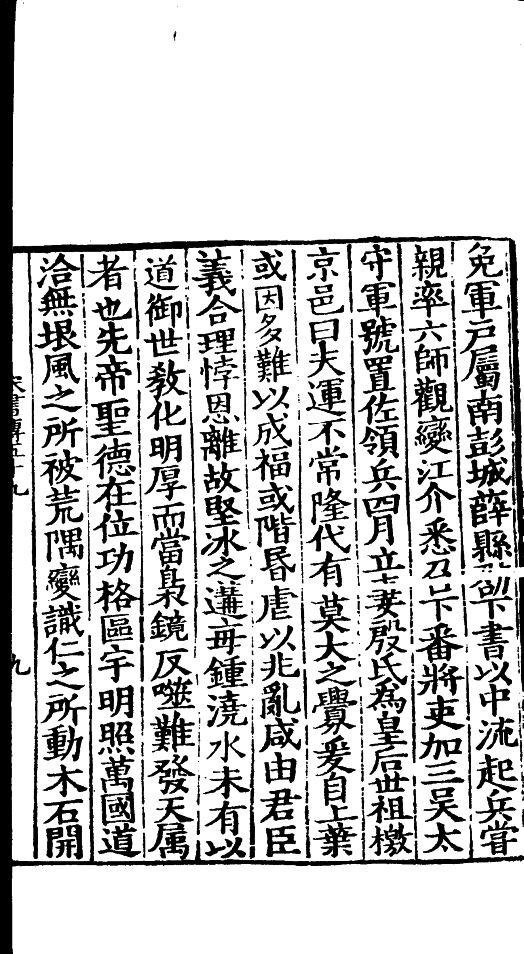 免軍戶屬南彭城薛縣劭下書以中流起兵當
親率六師觀變江介悉召下番將吏加三吳太
守軍號置佐領兵四月立妻殷氏為皇后世祖檄
京邑曰夫運不常隆代有莫大之釁爰自上葉
或因多難以成福或階昬虐以兆亂咸由君臣
義合理悖恩離故堅冰之遘每鍾澆水未有以
道御世教化明厚而當梟鏡反噬難發天属
者也先帝聖德在位功格區宇明照萬國道
洽無垠風之所被荒隅變識仁之所動木石開
宋書傳五十九
九